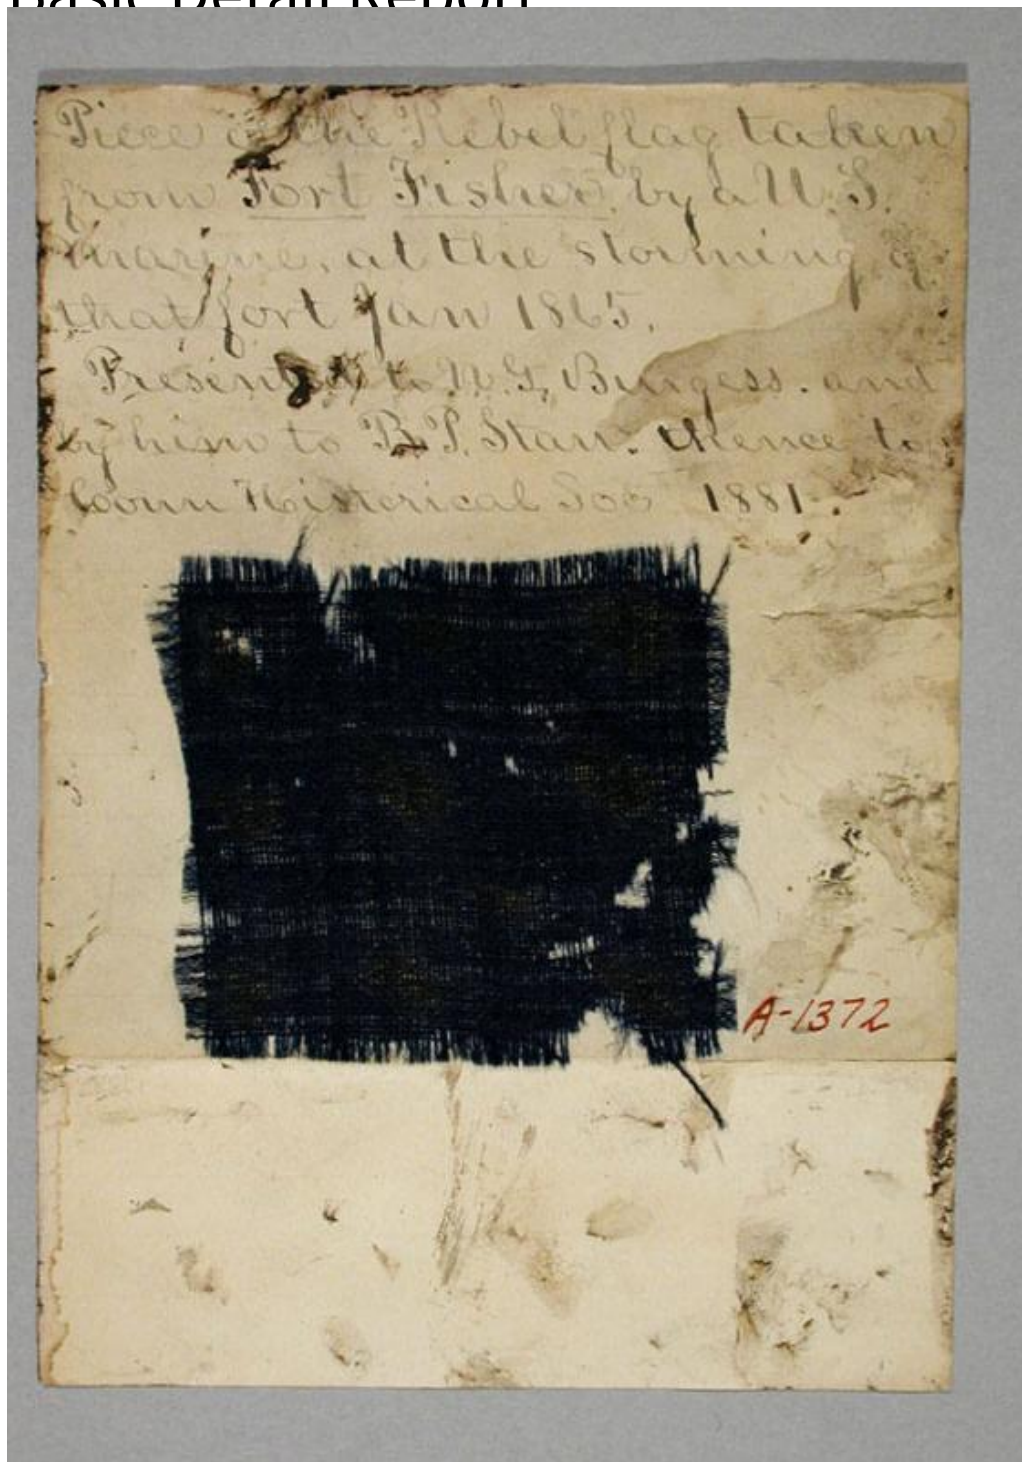 Basic Detail Report
Piece of the Rebel flag taken
from Fort Fisher, by a U.S.
marine, at the storming of
that fort Jan 1865.
Presented to N.G. Burgess. and
by him to B.P. Starr. thence to
Conn Historical Soc 1881.
A-1372